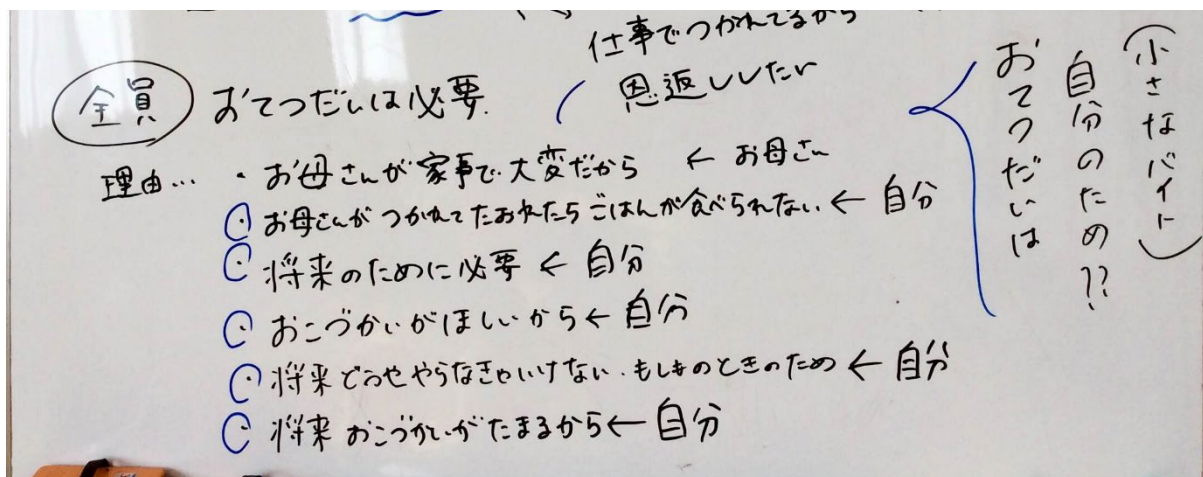 仕事でつかれてるから
恩返ししたい
全員 おてつだいは必要.
理由… ・お母さんが家事で大変だから ← お母さん
・お母さんがつかれてたおれたらごはんが食べられない ← 自分
・将来のために必要 ← 自分
・おこづかいがほしいから ← 自分
・将来どうせやらなきゃいけない、もしものときのため ← 自分
・将来おこづかいがたまるから ← 自分
(小さなバイト)
自分のため??
おてつだいは